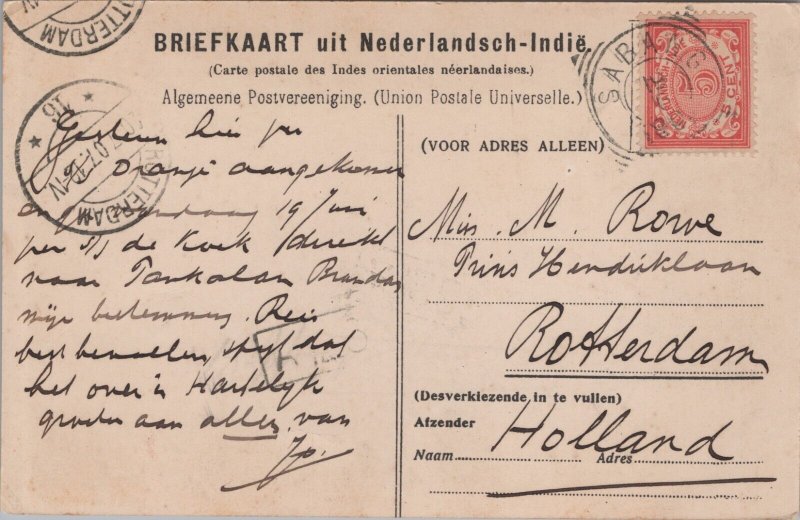 BRIEFKAART uit Nederlandsch-Indië
(Carte postale des Indes orientales néerlandaises.)
Algemeene Postvereeniging. (Union Postale Universelle.)
ROTTERDAM
SABANG
5 CENT
16
ROTTERDAM
Gisteren hier per
Oranje aangekomen
en vandaag 19 Juni
per s/s de Kock direkt
naar Pankalan Brandan
mijn bestemming. Reis
best bevallen, spijt dat
het over is Hartelijk
groeten aan allen van
Jo.
(VOOR ADRES ALLEEN)
Miss. M. Rowe
Prins Hendriklaan
Rotterdam
(Desverkiezende in te vullen)
Afzender
Holland
Naam Adres